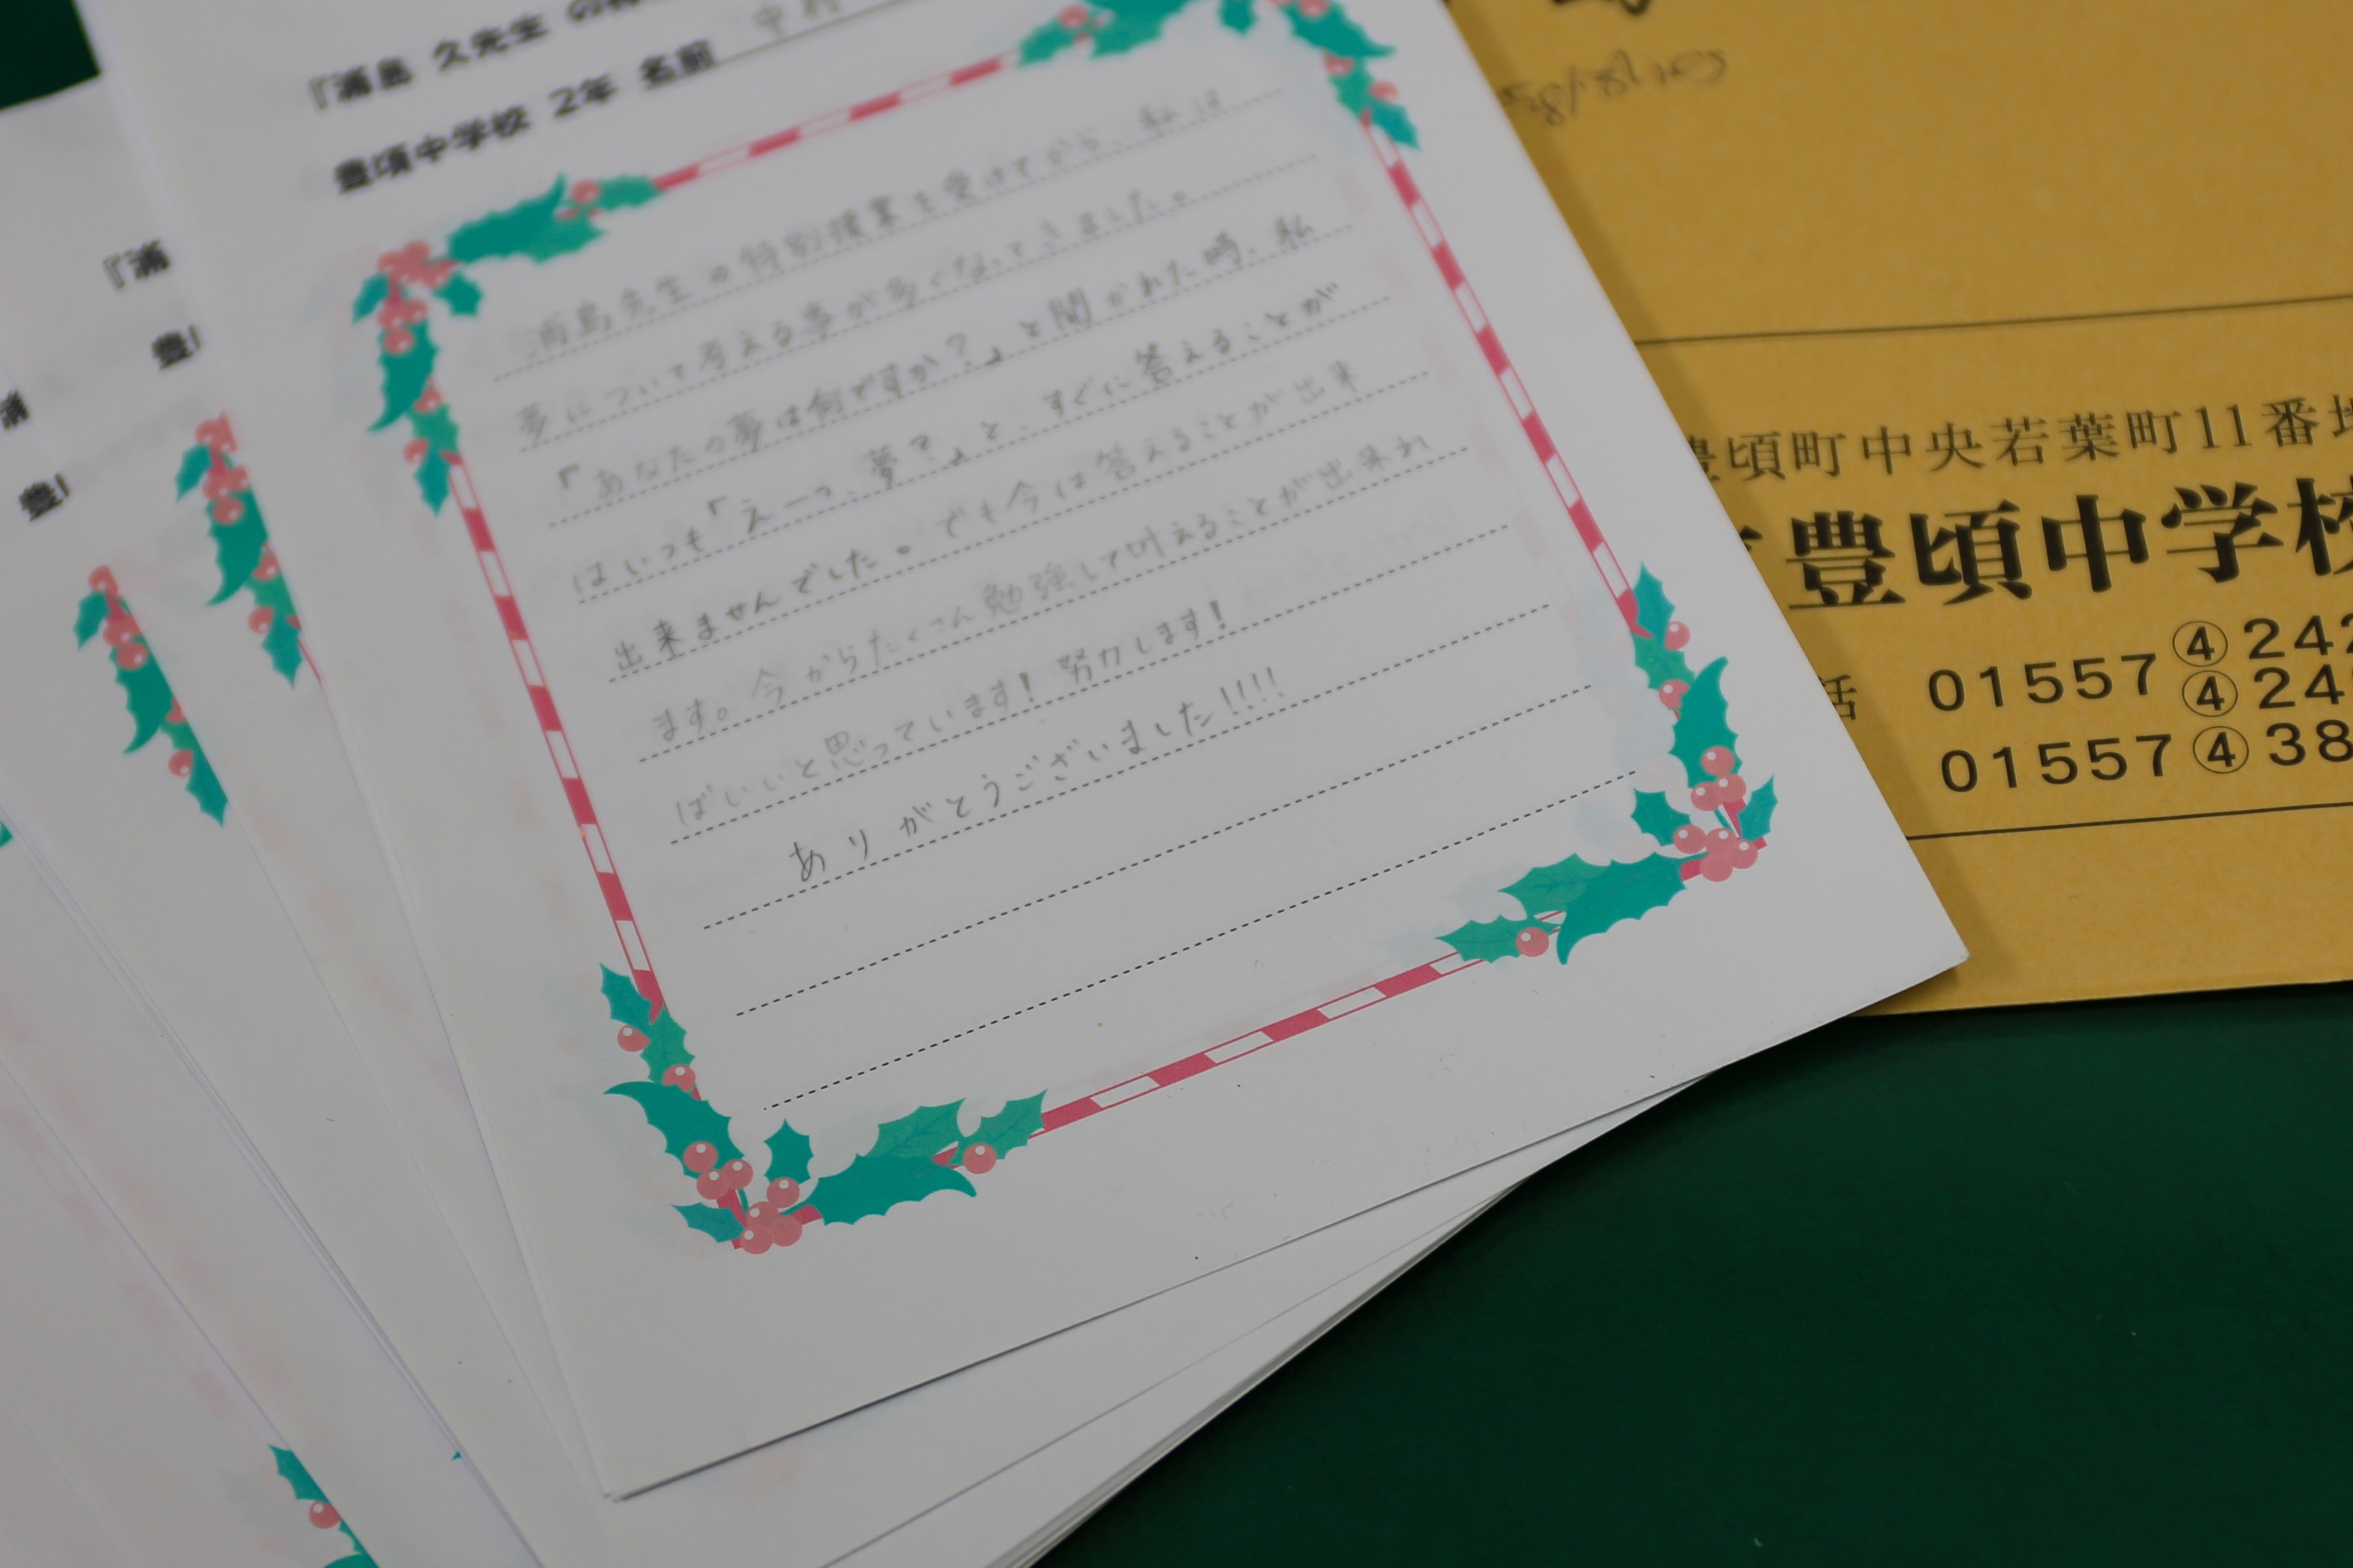 『浦島 久先生 の特
豊頃中学校 2年 名前 中村
浦島先生の特別授業を受けてから、私は
夢について考える事が多くなってきました。
「あなたの夢は何ですか?」と聞かれた時、私
はいつも「えーっ、夢?」と、すぐに答えることが
出来ませんでした。でも今は答えることが出来
ます。今からたくさん勉強して叶えることが出来れ
ばいいと思っています!努力します!
ありがとうございました!!!!
『浦
豊
浦
豊
豊頃町中央若葉町11番地
豊頃中学校
話 01557④242
④24
01557④38